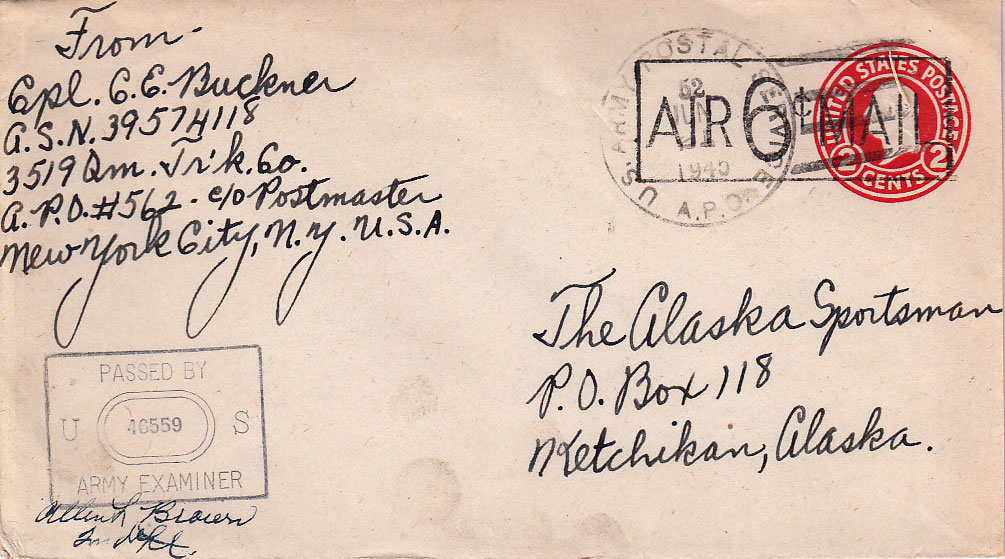 From-
Cpl. C.E. Buckner
A.S.N. 39574118
3519 Qm. Tr'k. Co.
A.P.O. #562 - c/o Postmaster
New York City, N.Y. U.S.A.
U.S. ARMY POSTAL SERVICE
A.P.O.
52
JUN
1945
AIR 6¢ MAIL
UNITED STATES POSTAGE
2 CENTS 2
The Alaska Sportsman
P.O. Box 118
Ketchikan, Alaska.
PASSED BY
U 46559 S
ARMY EXAMINER
Allen L Brown